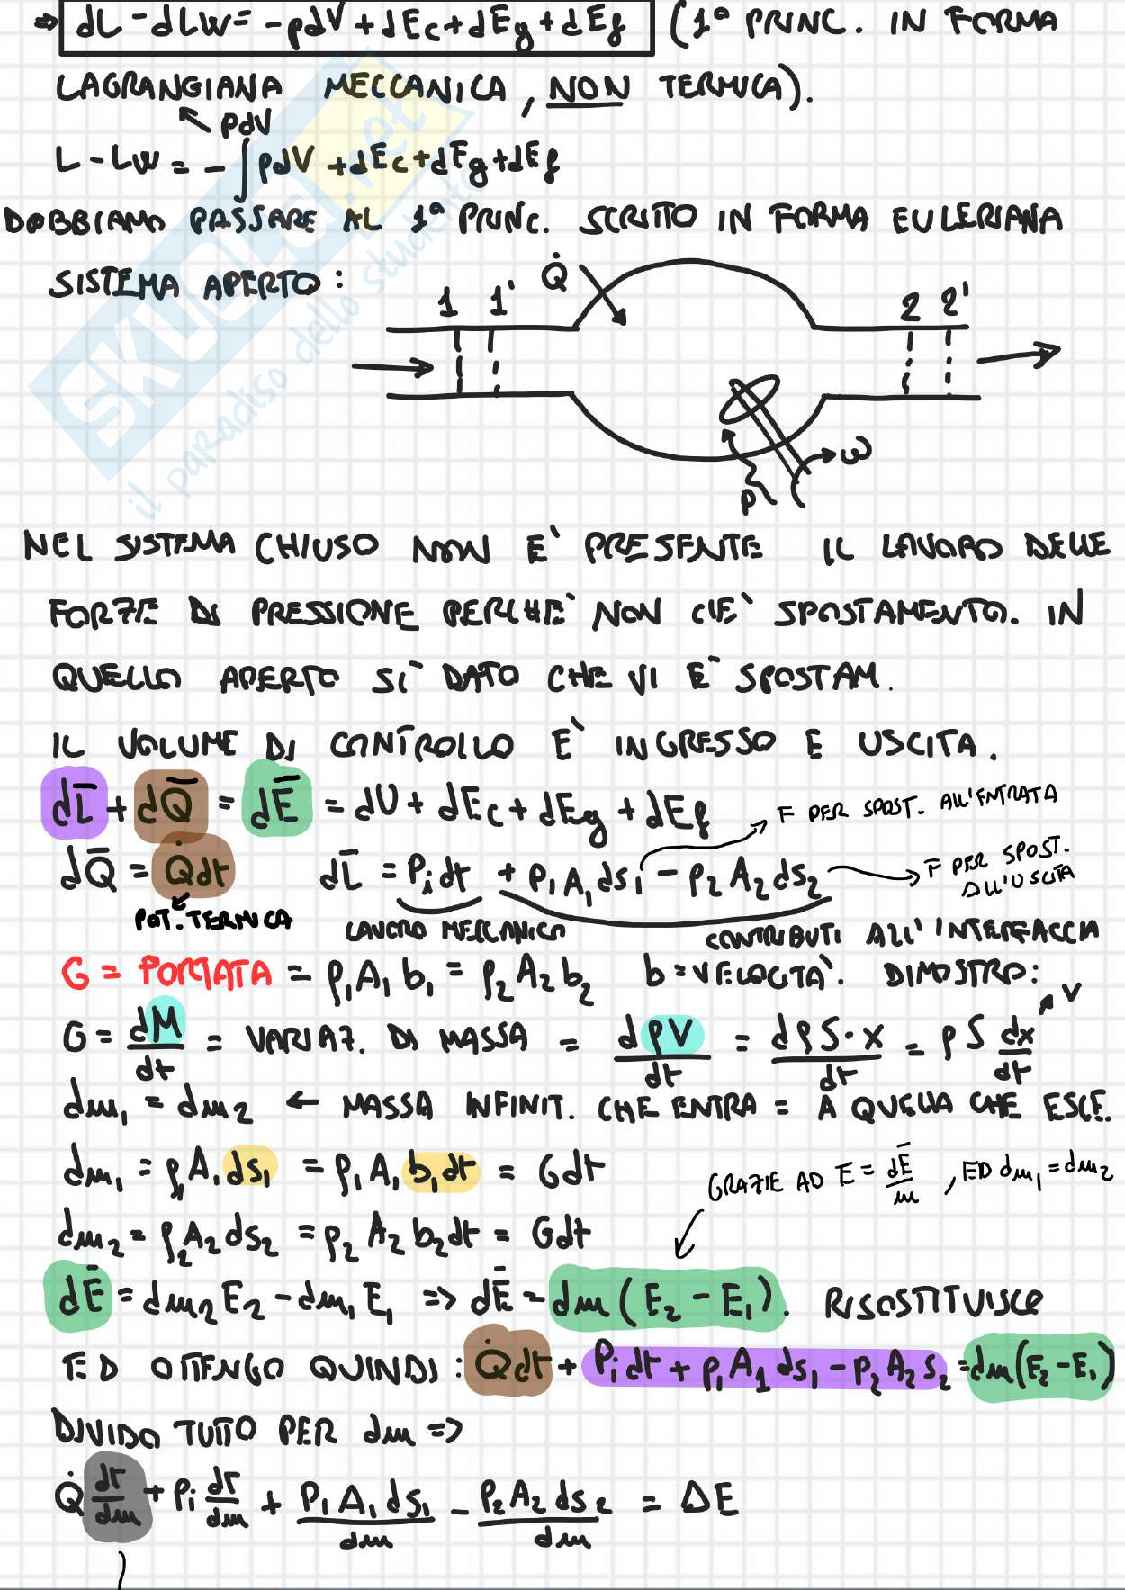 ⇒ dL - dLw = -pdV + dEc + dEg + dEf (1° PRINC. IN FORMA
LAGRANGIANA MECCANICA, NON TERMICA).
pdV
L - Lw = -∫pdV + dEc + dEg + dEf
DOBBIAMO PASSARE AL 1° PRINC. SCRITTO IN FORMA EULERIANA
SISTEMA APERTO:
Q̇
1 1' 2 2'
P ω
NEL SISTEMA CHIUSO NON E' PRESENTE IL LAVORO DELLE
FORZE DI PRESSIONE PERCHE' NON C'E' SPOSTAMENTO. IN
QUELLO APERTO SI' DATO CHE VI E' SPOSTAM.
IL VOLUME DI CONTROLLO E' INGRESSO E USCITA.
dL̄ + dQ̄ = dĒ = dU + dEc + dEg + dEf
F PER SPOST. ALL'ENTRATA
dQ̄ = Q̇dt dL̄ = Pidt + p₁A₁ds₁ - p₂A₂ds₂
F PER SPOST. ALL'USCITA
POT. TERMICA LAVORO MECCANICO CONTRIBUTI ALL'INTERFACCIA
G = PORTATA = ρ₁A₁b₁ = ρ₂A₂b₂ b = VELOCITA'. DIMOSTRO:
G = dM/dt = VARIAZ. DI MASSA = dρV/dt = dρS·x/dt = ρS dx/dt V
dm₁ = dm₂ ← MASSA INFINIT. CHE ENTRA = A QUELLA CHE ESCE.
dm₁ = ρ₁A₁ds₁ = ρ₁A₁b₁dt = Gdt
GRAZIE AD E = dĒ/m, ED dm₁ = dm₂
dm₂ = ρ₂A₂ds₂ = ρ₂A₂b₂dt = Gdt
dĒ = dm₂E₂ - dm₁E₁ => dĒ = dm(E₂ - E₁). RISOSTITUISCO
ED OTTENGO QUINDI: Q̇dt + Pidt + p₁A₁ds₁ - p₂A₂s₂ = dm(E₂ - E₁)
DIVIDO TUTTO PER dm =>
Q̇ dt/dm + Pi dt/dm + p₁A₁ds₁/dm - p₂A₂ds₂/dm = ΔE
SKUOLA.net
il paradiso dello studente